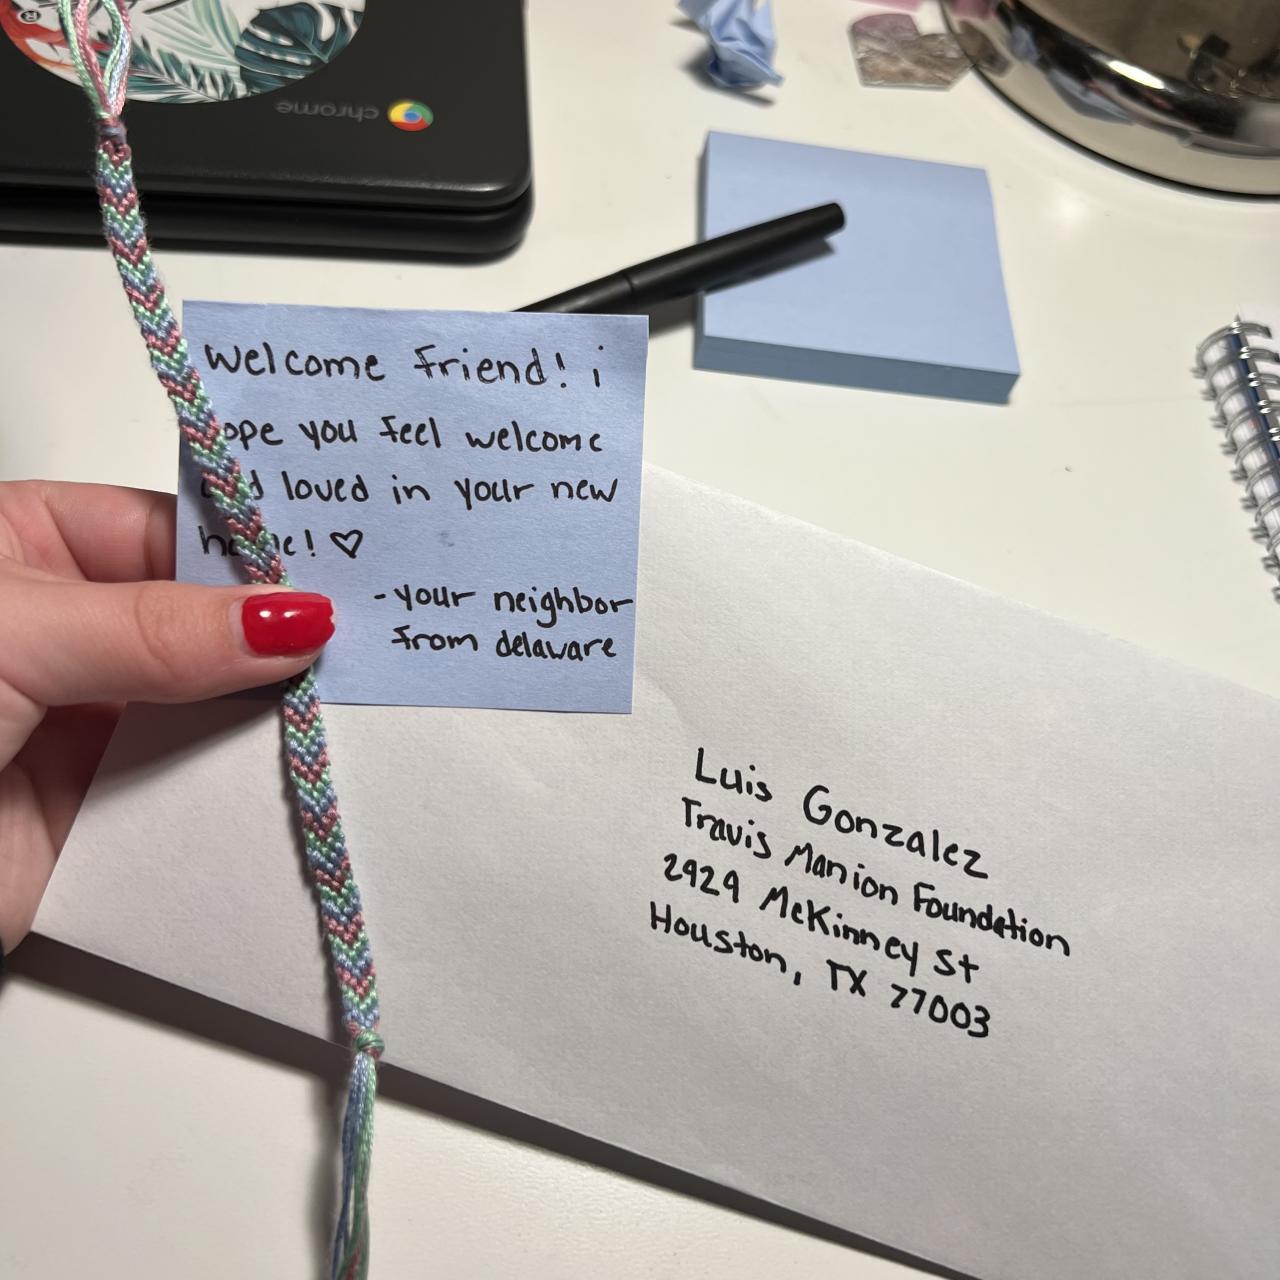 ®
chrome
welcome friend! i
ope you feel welcome
loved in your new
! ♡
-your neighbor
from delaware
Luis Gonzalez
Travis Manion Foundation
2929 McKinney St
Houston, TX 77003